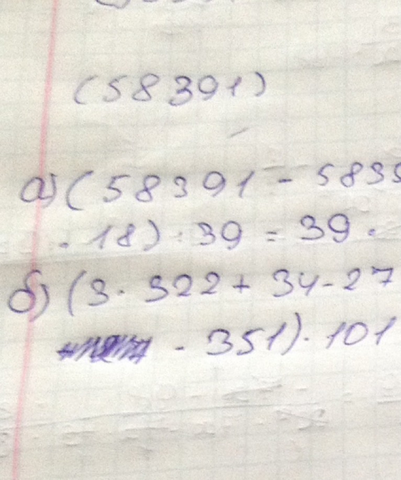 (58391)
а) (58391 - 5835
· 18) · 39 = 39 ·
б) (3 · 322 + 34 - 27
- 351) · 101